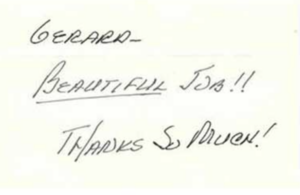 GERARD-
BEAUTIFUL JOB!!
THANKS SO MUCH!